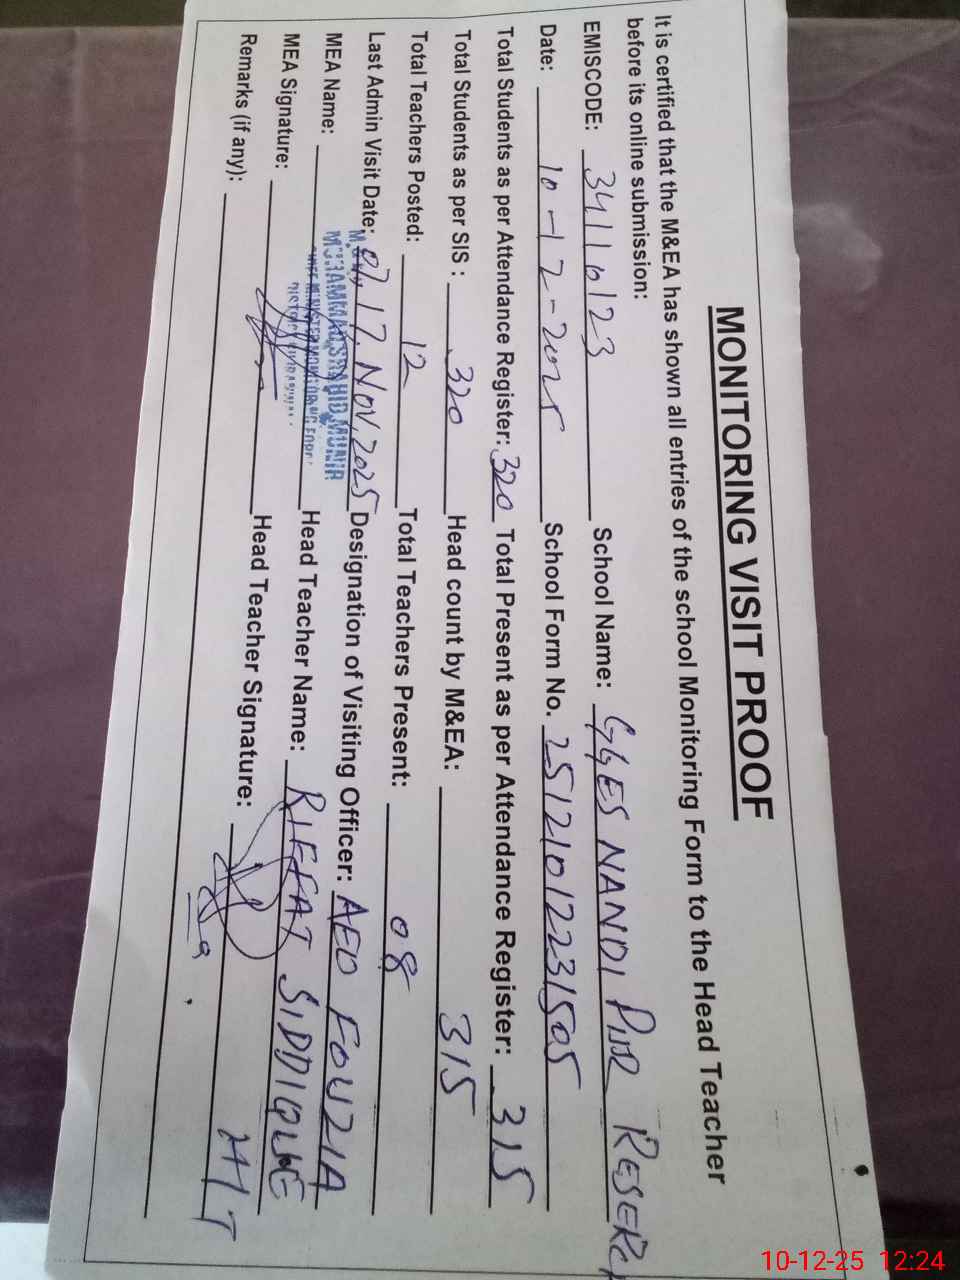 MONITORING VISIT PROOF
It is certified that the M&EA has shown all entries of the school Monitoring Form to the Head Teacher
before its online submission:
EMISCODE: 34110123 School Name: GGES NANDI PUR RESERCH
Date: 10-12-2025 School Form No. 25121012231505
Total Students as per Attendance Register: 320 Total Present as per Attendance Register: 315
Total Students as per SIS : 320 Head count by M&EA: 315
Total Teachers Posted: 12 Total Teachers Present: 08
Last Admin Visit Date: 17, Nov, 2025 Designation of Visiting Officer: AEO FOUZIA
MEA Name: MUHAMMAD SHAHID MUNIR Head Teacher Name: RIFFAT SIDDIQUE
CHIEF MINISTER MONITORING FORCE
MEA Signature: Head Teacher Signature: H/T
Remarks (if any):
10-12-25 12:24